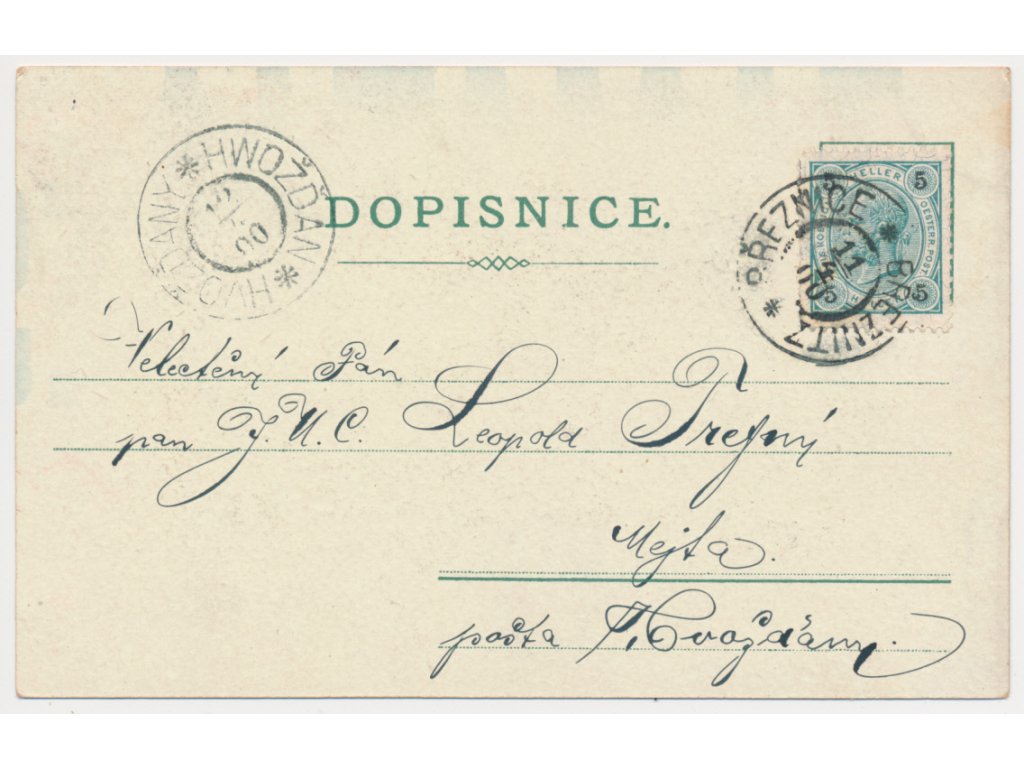 HWOŽĎAN * HVOŽĎANY *
12 4 00
DOPISNICE.
5 HELLER 5
OESTERR. POST.
5 5
BŘEZNICE * BŘEZNITZ *
11 4 00
Velectěný Pán
pan J.U.C. Leopold Trefný
Mejta.
pošta Hvožďany